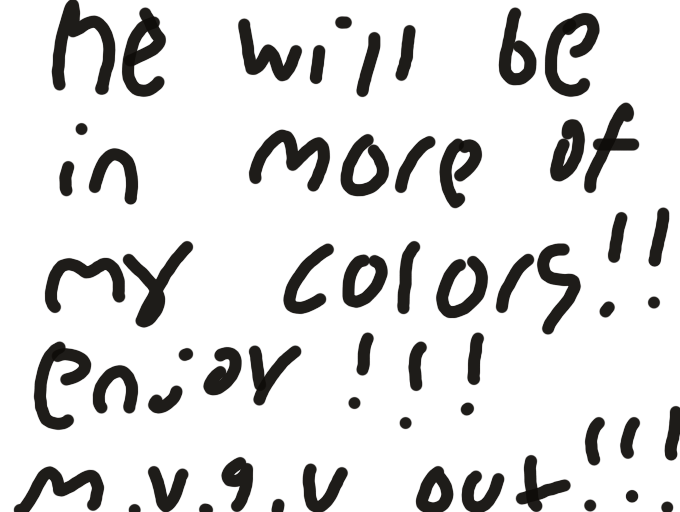 he will be
in more of
my colors!!
enjoy!!!
m.v.g.v out!!!